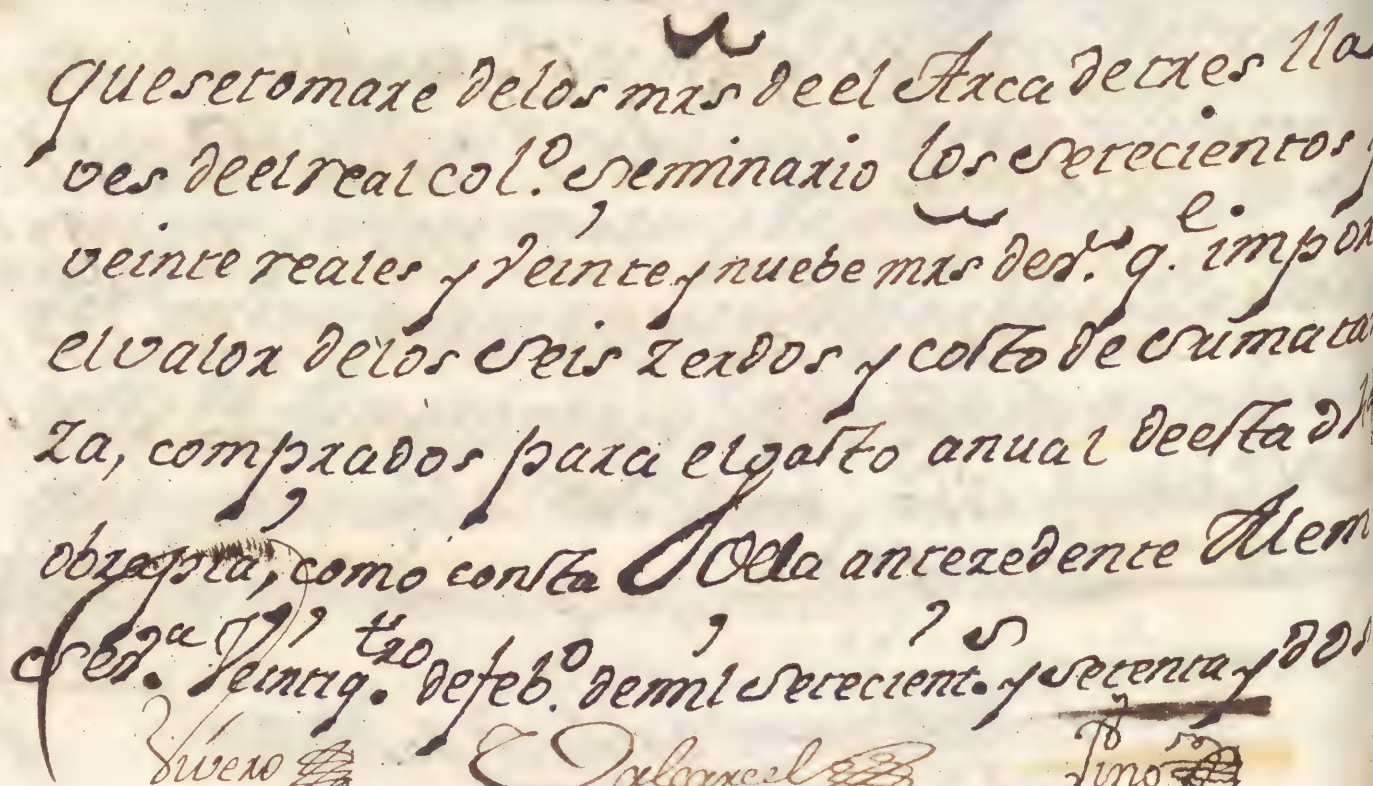 que se tomare de los mrs de el Arca de tres lla
ves de el real col.º Seminario los setecientos y
veinte reales y veinte y nuebe mrs de v.ⁿ q.ᵉ impor
el valor de los seis zerdos y costo de su mata
za, comprados para el gasto anual de esta
obrapia, como consta de la anteredente
y Veintiq.ᵗʳᵒ de feb.º de mil setecient.ˢ y setenta y dos
Vivero Valcarcel Pino